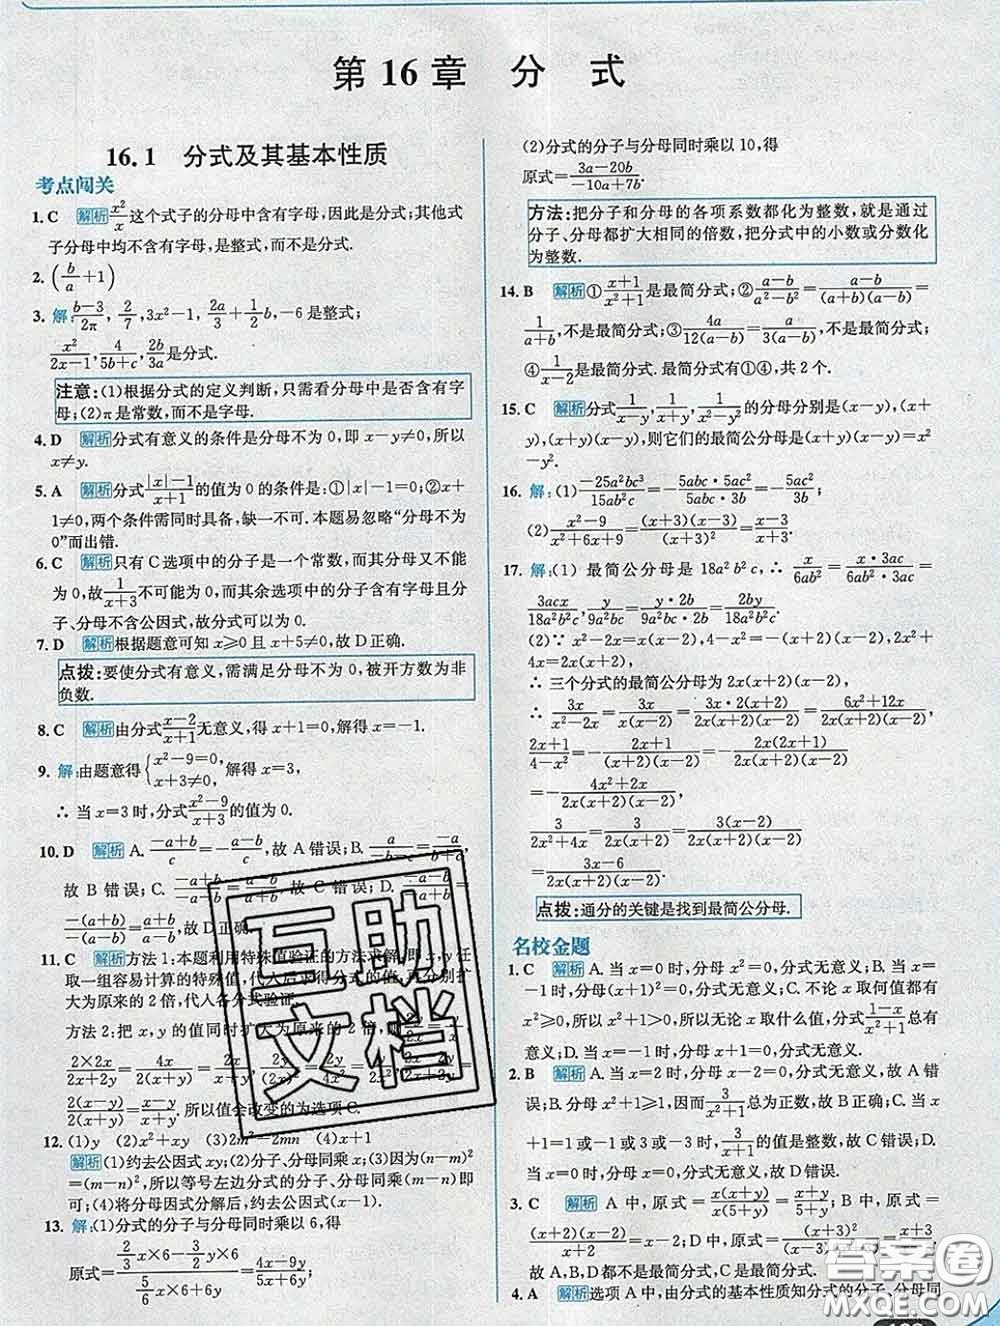 第16章 分 式
16.1 分式及其基本性质
考点闯关
1. C 解析 x²/x 这个式子的分母中含有字母,因此是分式;其他式
子分母中均不含有字母,是整式,而不是分式.
2. (b/a+1)
3. 解: (b-3)/2π, 2/7, 3x²-1, 2a/3+1/2b, -6是整式;
x²/(2x-1), 4/(5b+c), 2b/3a是分式.
注意:(1)根据分式的定义判断,只需看分母中是否含有字
母;(2)π是常数,而不是字母.
4. D 解析 分式有意义的条件是分母不为0,即x-y≠0,所以
x≠y.
5. A 解析 分式(|x|-1)/(x+1)的值为0的条件是:①|x|-1=0;②x+
1≠0,两个条件需同时具备,缺一不可.本题易忽略“分母不为
0”而出错.
6. C 解析 只有C选项中的分子是一个常数,而其分母又不可能
为0,故1/(x+3)不可能为0,而其余选项中的分子含有字母且分
子、分母不含公因式,故分式可以为0.
7. D 解析 根据题意可知x≥0且x+5≠0,故D正确.
点拨:要使分式有意义,需满足分母不为0,被开方数为非
负数.
8. C 解析 由分式(x-2)/(x+1)无意义,得x+1=0,解得x=-1.
9. 解:由题意得{x²-9=0, x+3≠0, 解得x=3,
∴ 当x=3时,分式(x²-9)/(x+3)的值为0.
10. D 解析 A. (-a+b)/c=-(a-b)/c,故A错误;B. -a/(b-a)=a/(a-b),
故B错误;C. (-a-b)/c=-(a+b)/c,故C错误;D. (-a-b)/(-a+b)
=-(a+b)/-(a-b)=(a+b)/(a-b),故D正确.
11. C 解析 方法1:本题利用特殊值验证的方法求解,即x,y任
取一组容易计算的特殊值,代入后求得分式的值,再分别扩
大为原来的2倍,代入各分式验证.
方法2:把x,y的值同时扩大为原来的2倍
2×2x/(2x+2y)=4x/2(x+y)=2x/(x+y),
2(x-y)/2(x+y)=(x-y)/(x+y).所以值会改变的为选项C.
12. (1)y (2)x²+xy (3)2m²-2mn (4)x+1
解析 (1)约去公因式xy;(2)分子、分母同乘x;(3)因为(n-m)²
=(m-n)²,所以等号左边分式的分子、分母同乘(m-n)即
可;(4)将分母因式分解后,约去公因式(x-1).
13. 解:(1)分式的分子与分母同时乘以6,得
原式=(2/3x×6-3/2y×6)/(5/6x×6+y×6)=(4x-9y)/(5x+6y);
(2)分式的分子与分母同时乘以10,得
原式=(3a-20b)/(-10a+7b).
方法:把分子和分母的各项系数都化为整数,就是通过
分子、分母都扩大相同的倍数,把分式中的小数或分数化
为整数.
14. B 解析 ①(x+1)/(x²+1)是最简分式;②(a-b)/(a²-b²)=(a-b)/(a+b)(a-b)=
1/(a+b),不是最简分式;③4a/12(a-b)=a/3(a-b),不是最简分式;
④1/(x-2)是最简分式.最简分式有①④,共2个.
15. C 解析 分式1/(x-y),1/(x+y),1/(x²-y²)的分母分别是(x-y),(x+
y),(x+y)(x-y),则它们的最简公分母是(x+y)(x-y)=x²-
y².
16. 解:(1) -25a²bc³/15ab²c=-5abc·5ac²/5abc·3b=-5ac²/3b;
(2) (x²-9)/(x²+6x+9)=(x+3)(x-3)/(x+3)²=(x-3)/(x+3).
17. 解:(1) 最简公分母是18a²b²c,∴ x/6ab²=x·3ac/6ab²·3ac=
3acx/18a²b²c, y/9a²bc=y·2b/9a²bc·2b=2by/18a²b²c.
(2)∵ x²-2x=x(x-2),4-x²=-(x+2)(x-2),2x²+
4x=2x(x+2),
∴ 三个分式的最简公分母为2x(x+2)(x-2),
∴ 3x/(x²-2x)=3x/x(x-2)=3x·2(x+2)/2x(x+2)(x-2)=(6x²+12x)/2x(x+2)(x-2),
(2x+1)/(4-x²)=-(2x+1)/(x+2)(x-2)=-2x(2x+1)/2x(x+2)(x-2)
=-(4x²+2x)/2x(x+2)(x-2),
3/(2x²+4x)=3/2x(x+2)=3(x-2)/2x(x+2)(x-2)=
(3x-6)/2x(x+2)(x-2).
点拨:通分的关键是找到最简公分母.
名校金题
1. C 解析 A. 当x=0时,分母x²=0,分式无意义;B. 当x=
-1时,分母(x+1)²=0,分式无意义;C. 不论x取何值都有
x²≥0,所以x²+1>0,所以无论x取什么值,分式(1-x)/(x²+1)总有
意义;D. 当x=-1时,分母x+1=0,分式无意义.
2. B 解析 A. 当x=2时,分母x-2=0,分式无意义,故A错
误;B. 分母x²+1≥1,因而1/(x²+1)总为正数,故B正确;C. 当x
+1=1或-1或3或-3时,3/(x+1)的值是整数,故C错误;D.
当x=0时,分母x=0,分式无意义,故D错误.
3. C 解析 A中,原式=x(x+y)/x(5+y)=(x+y)/(5+y);B中,原式=
(x+2)(x-2)/(x+2)=x-2;D中,原式=
故A,B,D都不是最简分式,C是最简分式.
4. A 解析 选项A中,由分式的基本性质知分式的分子、分母同
互助文档
答案圈
MXQE.COM